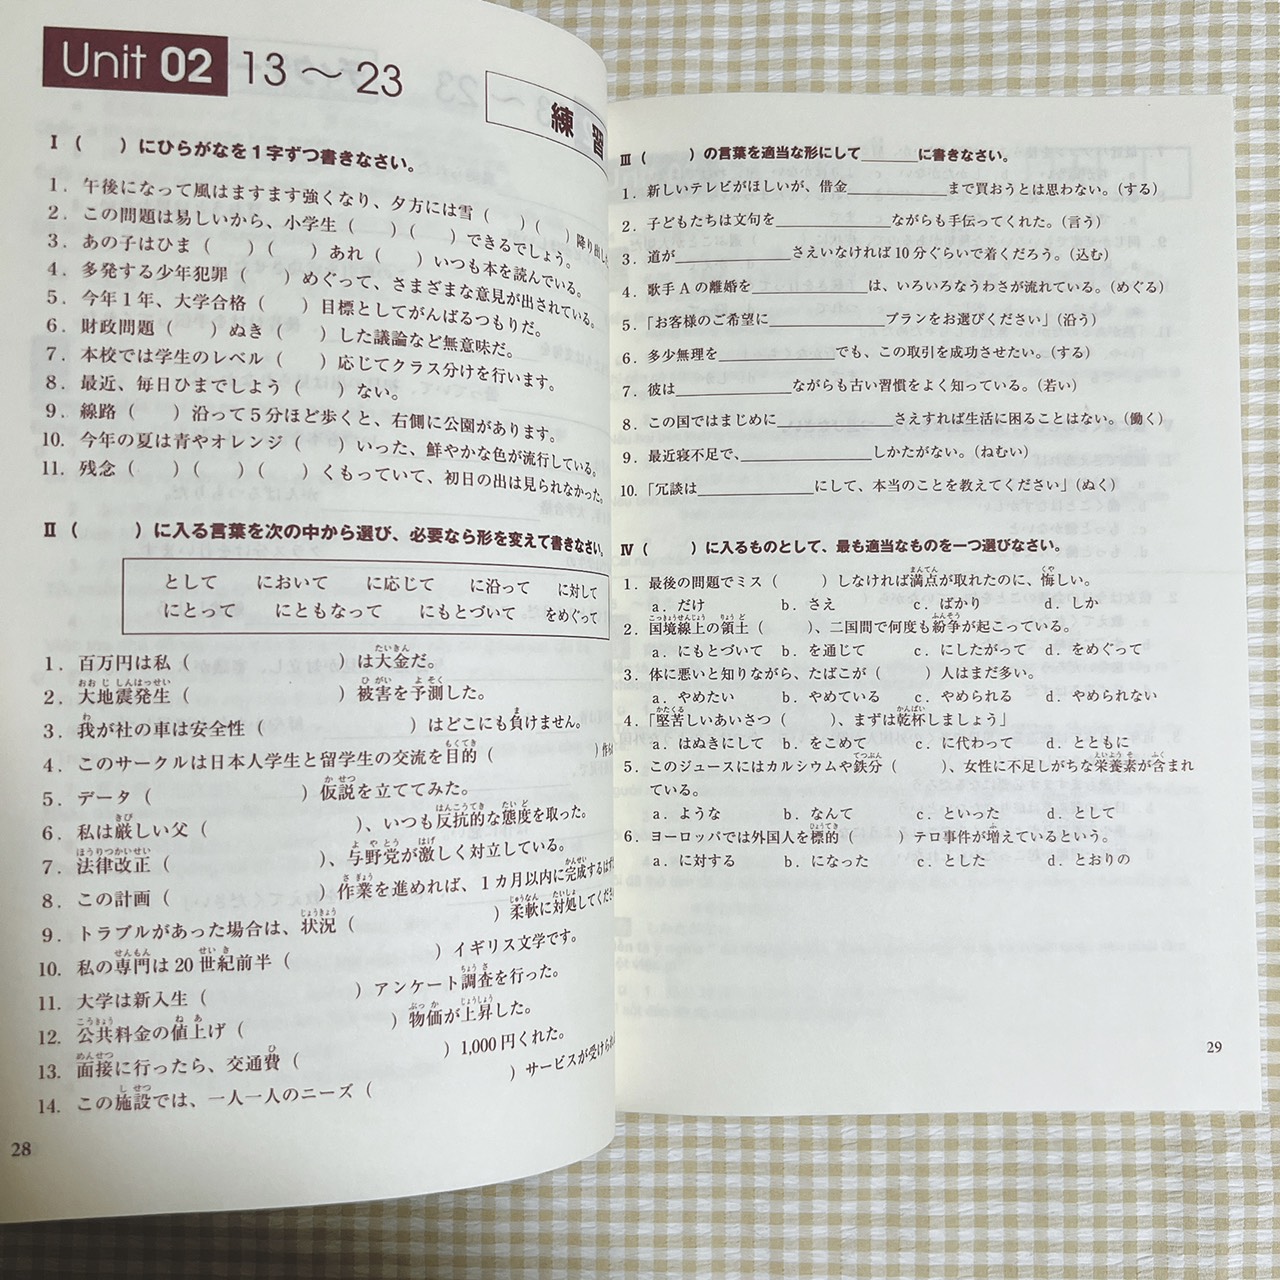 Unit 02 13 ～ 23
練 習
Ⅰ (　　)にひらがなを1字ずつ書きなさい。
1. 午後になって風はますます強くなり、夕方には雪(　　)(　　)降り出した
2. この問題は易しいから、小学生(　　)(　　)できるでしょう。
3. あの子はひま(　　)(　　)あれ(　　)いつも本を読んでいる。
4. 多発する少年犯罪(　　)めぐって、さまざまな意見が出されている。
5. 今年1年、大学合格(　　)目標としてがんばるつもりだ。
6. 財政問題(　　)ぬき(　　)した議論など無意味だ。
7. 本校では学生のレベル(　　)応じてクラス分けを行います。
8. 最近、毎日ひまでしよう(　　)ない。
9. 線路(　　)沿って5分ほど歩くと、右側に公園があります。
10. 今年の夏は青やオレンジ(　　)いった、鮮やかな色が流行している。
11. 残念(　　)(　　)(　　)くもっていて、初日の出は見られなかった。
Ⅱ (　　)に入る言葉を次の中から選び、必要なら形を変えて書きなさい。
として　において　に応じて　に沿って　に対して
にとって　にともなって　にもとづいて　をめぐって
1. 百万円は私(　　)は大金だ。
2. 大地震発生(　　)被害を予測した。
3. 我が社の車は安全性(　　)はどこにも負けません。
4. このサークルは日本人学生と留学生の交流を目的(　　)
5. データ(　　)仮説を立ててみた。
6. 私は厳しい父(　　)、いつも反抗的な態度を取った。
7. 法律改正(　　)、与野党が激しく対立している。
8. この計画(　　)作業を進めれば、1カ月以内に完成するはず
9. トラブルがあった場合は、状況(　　)柔軟に対処してくださ
10. 私の専門は20世紀前半(　　)イギリス文学です。
11. 大学は新入生(　　)アンケート調査を行った。
12. 公共料金の値上げ(　　)物価が上昇した。
13. 面接に行ったら、交通費(　　)1,000円くれた。
14. この施設では、一人一人のニーズ(　　)サービスが受けられ
28
Ⅲ (　　)の言葉を適当な形にして______に書きなさい。
1. 新しいテレビがほしいが、借金______まで買おうとは思わない。(する)
2. 子どもたちは文句を______ながらも手伝ってくれた。(言う)
3. 道が______さえいなければ10分ぐらいで着くだろう。(込む)
4. 歌手Aの離婚を______は、いろいろなうわさが流れている。(めぐる)
5. 「お客様のご希望に______プランをお選びください」(沿う)
6. 多少無理を______でも、この取引を成功させたい。(する)
7. 彼は______ながらも古い習慣をよく知っている。(若い)
8. この国ではまじめに______さえすれば生活に困ることはない。(働く)
9. 最近寝不足で、______しかたがない。(ねむい)
10. 「冗談は______にして、本当のことを教えてください」(ぬく)
Ⅳ (　　)に入るものとして、最も適当なものを一つ選びなさい。
1. 最後の問題でミス(　　)しなければ満点が取れたのに、悔しい。
a. だけ　b. さえ　c. ばかり　d. しか
2. 国境線上の領土(　　)、二国間で何度も紛争が起こっている。
a. にもとづいて　b. を通じて　c. にしたがって　d. をめぐって
3. 体に悪いと知りながら、たばこが(　　)人はまだ多い。
a. やめたい　b. やめている　c. やめられる　d. やめられない
4. 「堅苦しいあいさつ(　　)、まずは乾杯しましょう」
a. はぬきにして　b. をこめて　c. に代わって　d. とともに
5. このジュースにはカルシウムや鉄分(　　)、女性に不足しがちな栄養素が含まれ
ている。
a. ような　b. なんて　c. といった　d. として
6. ヨーロッパでは外国人を標的(　　)テロ事件が増えているという。
a. に対する　b. になった　c. とした　d. とおりの
29